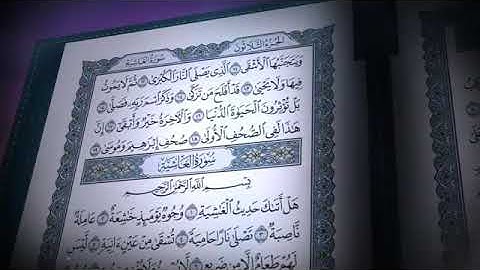 سورة الغاشية الجزء الثلاثون
ويتجنبها الأشقى ١١ الذي يصلى النار الكبرى ١٢ ثم لا يموت
فيها ولا يحيى ١٣ قد أفلح من تزكى ١٤ وذكر اسم ربه فصلى ١٥
بل تؤثرون الحيوة الدنيا ١٦ والآخرة خير وأبقى ١٧ إن
هذا لفي الصحف الأولى ١٨ صحف إبرهيم وموسى ١٩
سورة الغاشية
بسم الله الرحمن الرحيم
هل أتىك حديث الغشية ١ وجوه يومئذ خشعة ٢ عاملة
ناصبة ٣ تصلى نارا حامية ٤ تسقى من عين ءانية ٥ ليس
لهم طعام إلا من ضريع ٦